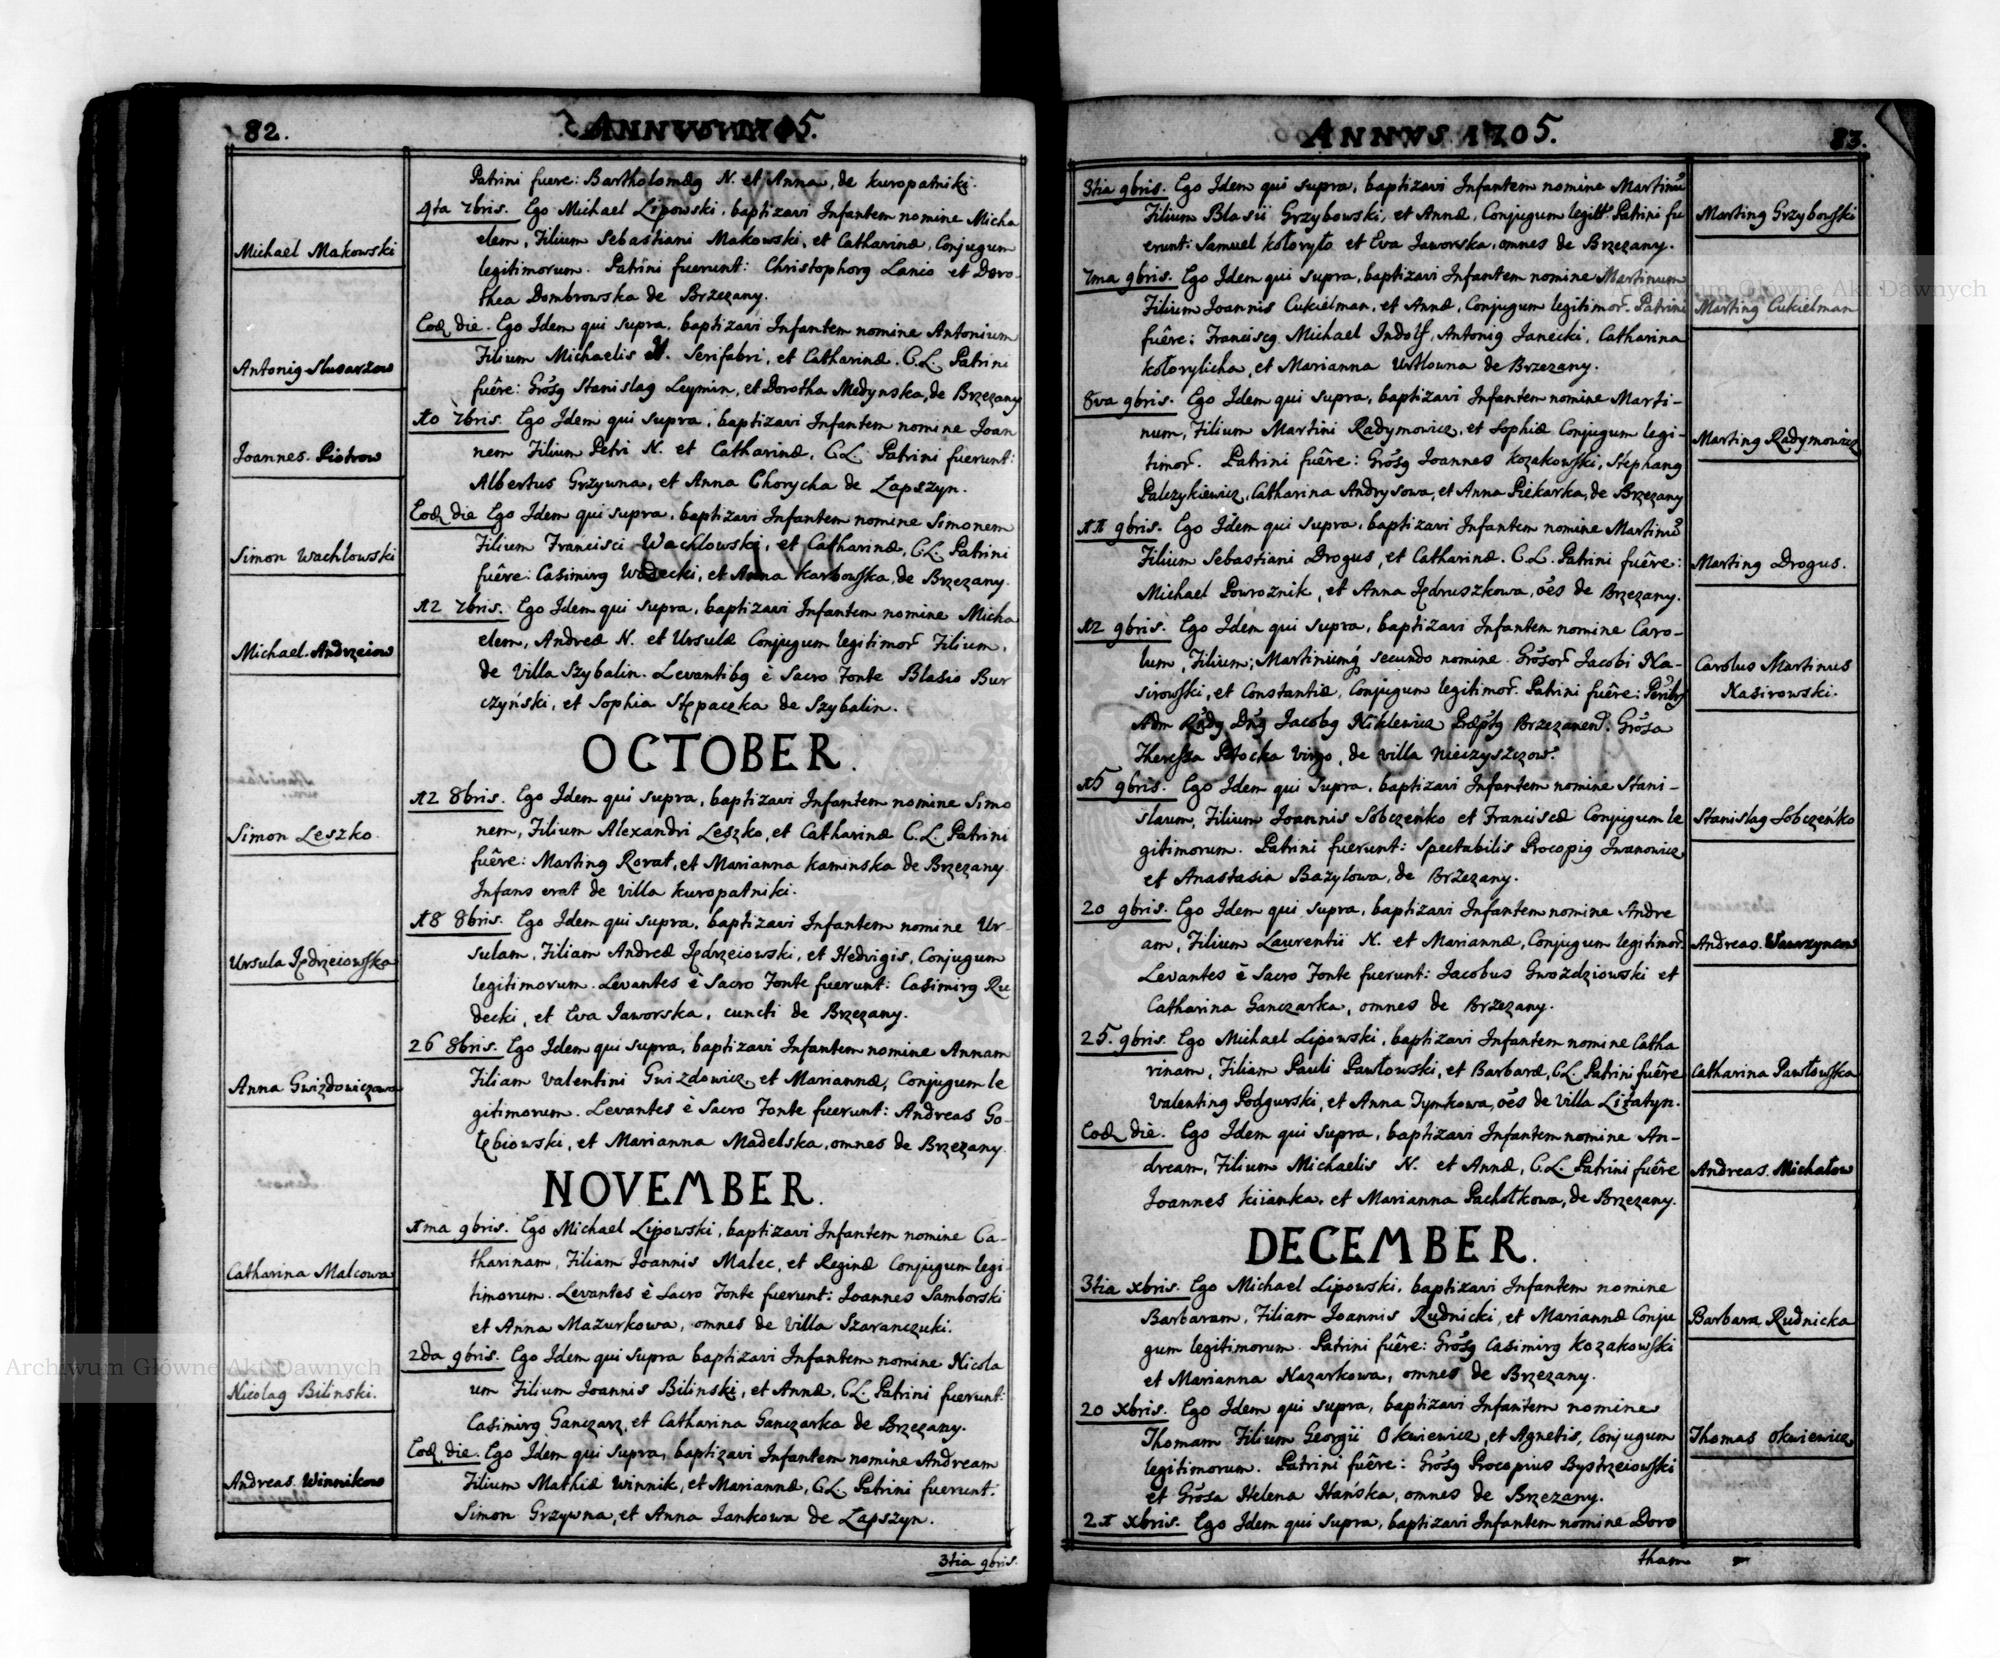 82.
ANNVS 1705.
Patrini fuere: Bartholomæg N. et Anna, de Kuropatniki.
4ta 7bris. Ego Michael Lipowski, baptizavi Infantem nomine Micha
Michael Makowski
elem, Filium Sebastiani Makowski, et Catharinæ, Conjugum
legitimorum. Patrini fuerunt: Christophorg Lanio et Doro-
thea Dombrowska de Brzezany.
Eod die. Ego Idem qui supra, baptizavi Infantem nomine Antonium
Antonig Slusarzow
Filium Michaelis N. Serifabri, et Catharinæ. C.L. Patrini
fuêre: Grosg Stanislag Leymin, et Dorotha Medynska, de Brzezany
10 7bris. Ego Idem qui supra, baptizavi Infantem nomine Joan
Joannes. Piotrow
nem Filium Petri N. et Catharinæ, C.L. Patrini fuerunt:
Albertus Grzywna, et Anna Chorycha de Łapszyn.
Eod die Ego Idem qui supra, baptizavi Infantem nomine Simonem
Simon Wachlowski
Filium Francisci Wachlowski, et Catharinæ, C.L. Patrini
fuêre: Casimirg Wodecki, et Anna Karbowska, de Brzezany.
12 7bris. Ego Idem qui supra, baptizavi Infantem nomine Micha
Michael. Andrzeiow
elem, Andreæ N. et Ursulæ Conjugum legitimor Filium,
de Villa Szybalin. Levantibg è Sacro Fonte Blasio Bur
czyński, et Sophia Stępaczka de Szybalin.
OCTOBER.
12 8bris. Ego Idem qui supra, baptizavi Infantem nomine Simo
Simon Leszko
nem, Filium Alexandri Leszko, et Catharinæ C.L. Patrini
fuêre: Marting Rorat, et Marianna Kaminska de Brzezany
Infans erat de Villa Kuropatniki.
18 8bris. Ego Idem qui supra, baptizavi Infantem nomine Ur-
Ursula Jędrzeiowska
sulam, Filiam Andreæ Jędrzeiowski, et Hedvigis, Conjugum
legitimorum. Levantes è Sacro Fonte fuerunt: Casimirg Ru
decki, et Eva Jaworska, cuncti de Brzezany.
26 8bris. Ego Idem qui supra, baptizavi Infantem nomine Annam
Anna Gwizdowiczowa
Filiam Valentini Gwizdowicz, et Mariannæ, Conjugum le
gitimorum. Levantes è Sacro Fonte fuerunt: Andreas Go-
łębiowski, et Marianna Madelska, omnes de Brzezany
NOVEMBER.
1ma 9bris. Ego Michael Lipowski, baptizavi Infantem nomine Ca-
Catharina Malcowa
tharinam, Filiam Joannis Malec, et Reginæ Conjugum legi-
timorum. Levantes è Sacro Fonte fuerunt: Joannes Samborski
et Anna Mazurkowa, omnes de Villa Szaranczuki.
2da 9bris. Ego Idem qui supra baptizavi Infantem nomine Nicola
Nicolag Bilinski.
um Filium Joannis Bilinski, et Annæ, C.L. Patrini fuerunt:
Casimirg Ganczarz, et Catharina Ganczarka de Brzezany.
Eod die. Ego Idem qui supra, baptizavi Infantem nomine Andream
Andreas. Winnikow
Filium Mathiæ Winnik, et Mariannæ, C.L. Patrini fuerunt:
Simon Grzywna, et Anna Jankowa de Łapszyn.
3tia 9bris.
ANNVS 1705.
83.
3tia 9bris. Ego Idem qui supra, baptizavi Infantem nomine Martinu
Filium Blasii Grzybowski, et Annæ, Conjugum legitt. Patrini fu
Marting Grzybowski
erunt: Samuel Kołoryło et Eva Jaworska, omnes de Brzezany.
7ma 9bris. Ego Idem qui supra, baptizavi Infantem nomine Martinum
Filium Joannis Cukielman, et Annæ, Conjugum legitimor. Patrini
Marting Cukielman
fuêre: Franciscg Michael Indolf, Antonig Janecki, Catharina
Kołorylicha, et Marianna Usttowna de Brzezany.
8va 9bris. Ego Idem qui supra, baptizavi Infantem nomine Marti-
num, Filium Martini Radymowicz, et Sophiæ Conjugum legi-
Marting Radymowicz
timor. Patrini fuêre: Grosg Joannes Kozakowski, Stephang
Palczykiewicz, Catharina Andrysowa, et Anna Piekarka, de Brzezany
11 9bris. Ego Idem qui supra, baptizavi Infantem nomine Martinu
Filium Sebastiani Drogus, et Catharinæ. C.L. Patrini fuêre:
Marting Drogus.
Michael Powroznik, et Anna Jędruszkowa, oes de Brzezany.
12 9bris. Ego Idem qui supra, baptizavi Infantem nomine Caro-
lum, Filium; Martiniumq secundo nomine. Grosor Jacobi Na-
Carolus Martinus
Nasirowski.
sirowski, et Constantiæ, Conjugum legitimor. Patrini fuêre: Perilrg
Adm Rndg Dng Jacobg Niklewicz Præpstg Brzezanen. Grosa
Theressa Potocka Virgo, de Villa Nieizyszczow.
15 9bris. Ego Idem qui supra, baptizavi Infantem nomine Stani-
slaum, Filium Joannis Sobczeńko et Franciscæ Conjugum le
Stanislag Sobczeńko
gitimorum. Patrini fuerunt: Spectabilis Procopig Jwanowicz
et Anastasia Bazylowa, de Brzezany.
20 9bris. Ego Idem qui supra, baptizavi Infantem nomine Andre
am, Filium Laurentii N. et Mariannæ, Conjugum legitimor
Andreas. Wawrzynow
Levantes è Sacro Fonte fuerunt: Jacobus Gwozdziowski et
Catharina Ganczarka, omnes de Brzezany.
25. 9bris. Ego Michael Lipowski, baptizavi Infantem nomine Catha
rinam, Filiam Pauli Pawłowski, et Barbaræ, C.L. Patrini fuêre
Catharina Pawłowska
Valenting Podgurski, et Anna Tymkowa, oes de Villa Lizatyn.
Eod die. Ego Idem qui supra, baptizavi Infantem nomine An-
dream, Filium Michaelis N. et Annæ, C.L. Patrini fuêre
Andreas. Michałow
Joannes Kiianka, et Marianna Pachołkowa, de Brzezany.
DECEMBER.
3tia xbris. Ego Michael Lipowski, baptizavi Infantem nomine
Barbaram, Filiam Joannis Rudnicki, et Mariannæ Conju
Barbara Rudnicka
gum legitimorum. Patrini fuêre: Grosg Casimirg Kozakowski
et Marianna Nazarkowa, omnes de Brzezany.
20 xbris. Ego Idem qui supra, baptizavi Infantem nomine
Thomam Filium Georgii Okwiewicz, et Agnetis, Conjugum
Thomas Okwiewicz
legitimorum. Patrini fuêre: Grosg Procopius Bystrzeiowski
et Grosa Helena Hańska, omnes de Brzezany.
21 xbris. Ego Idem qui supra, baptizavi Infantem nomine Doro
tham
Archiwum Główne Akt Dawnych
Archiwum Główne Akt Dawnych